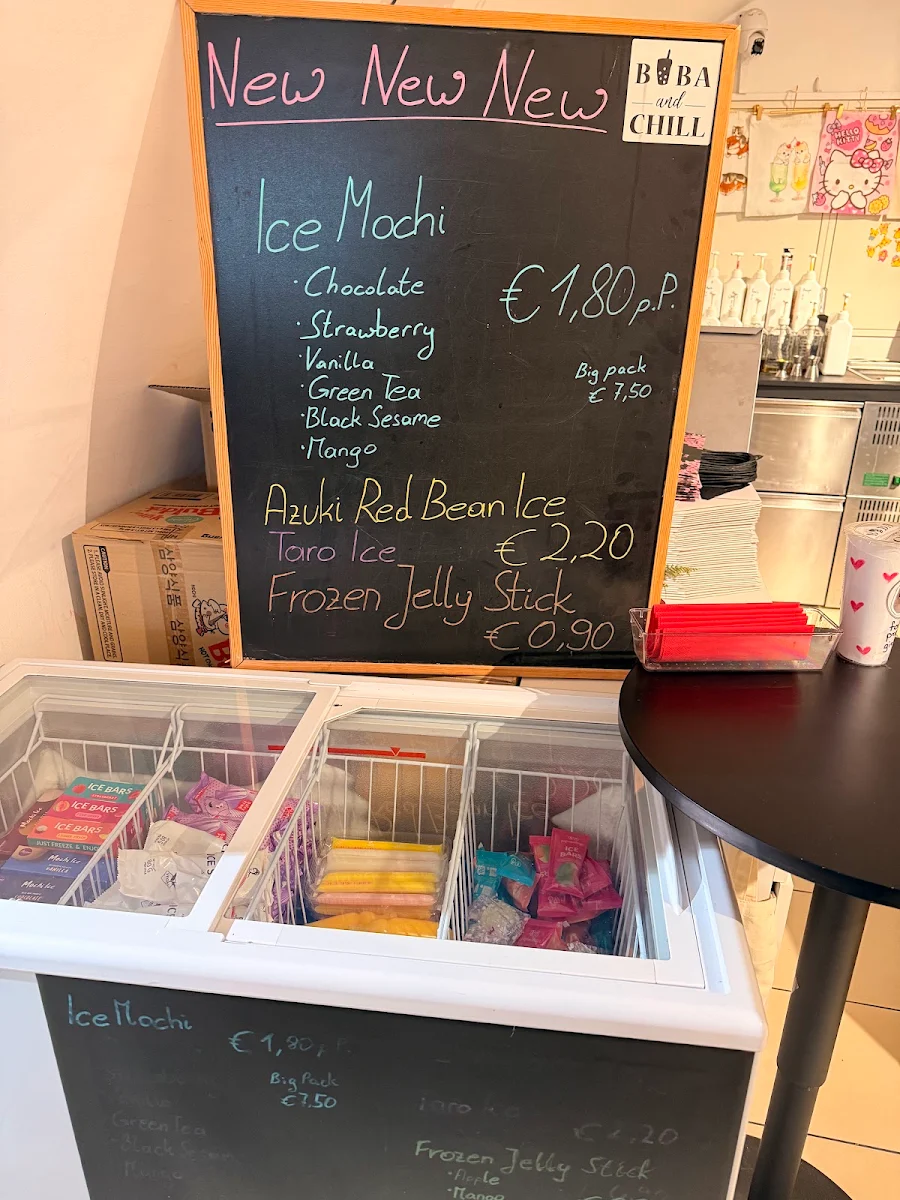 New New New
BOBA
and
CHILL
HELLO
KITTY
Ice Mochi
· Chocolate
€ 1,80 p.P.
· Strawberry
· Vanilla
Big pack
· Green Tea
€ 7,50
· Black Sesame
· Mango
Azuki Red Bean Ice
Taro Ice
€ 2,20
Frozen Jelly Stick
€ 0,90
삼양식품
ICE BARS
ICE BARS
ICE BARS
JUST FREEZE & ENJOY
Mochi Ice
VANILLA
Mochi Ice
ICE BARS
Ice Mochi
€ 1,80 p.P.
Big Pack
€ 7.50
Green Tea
Black Sesame
Mango
Frozen Jelly Stick
· Apple
· Mango